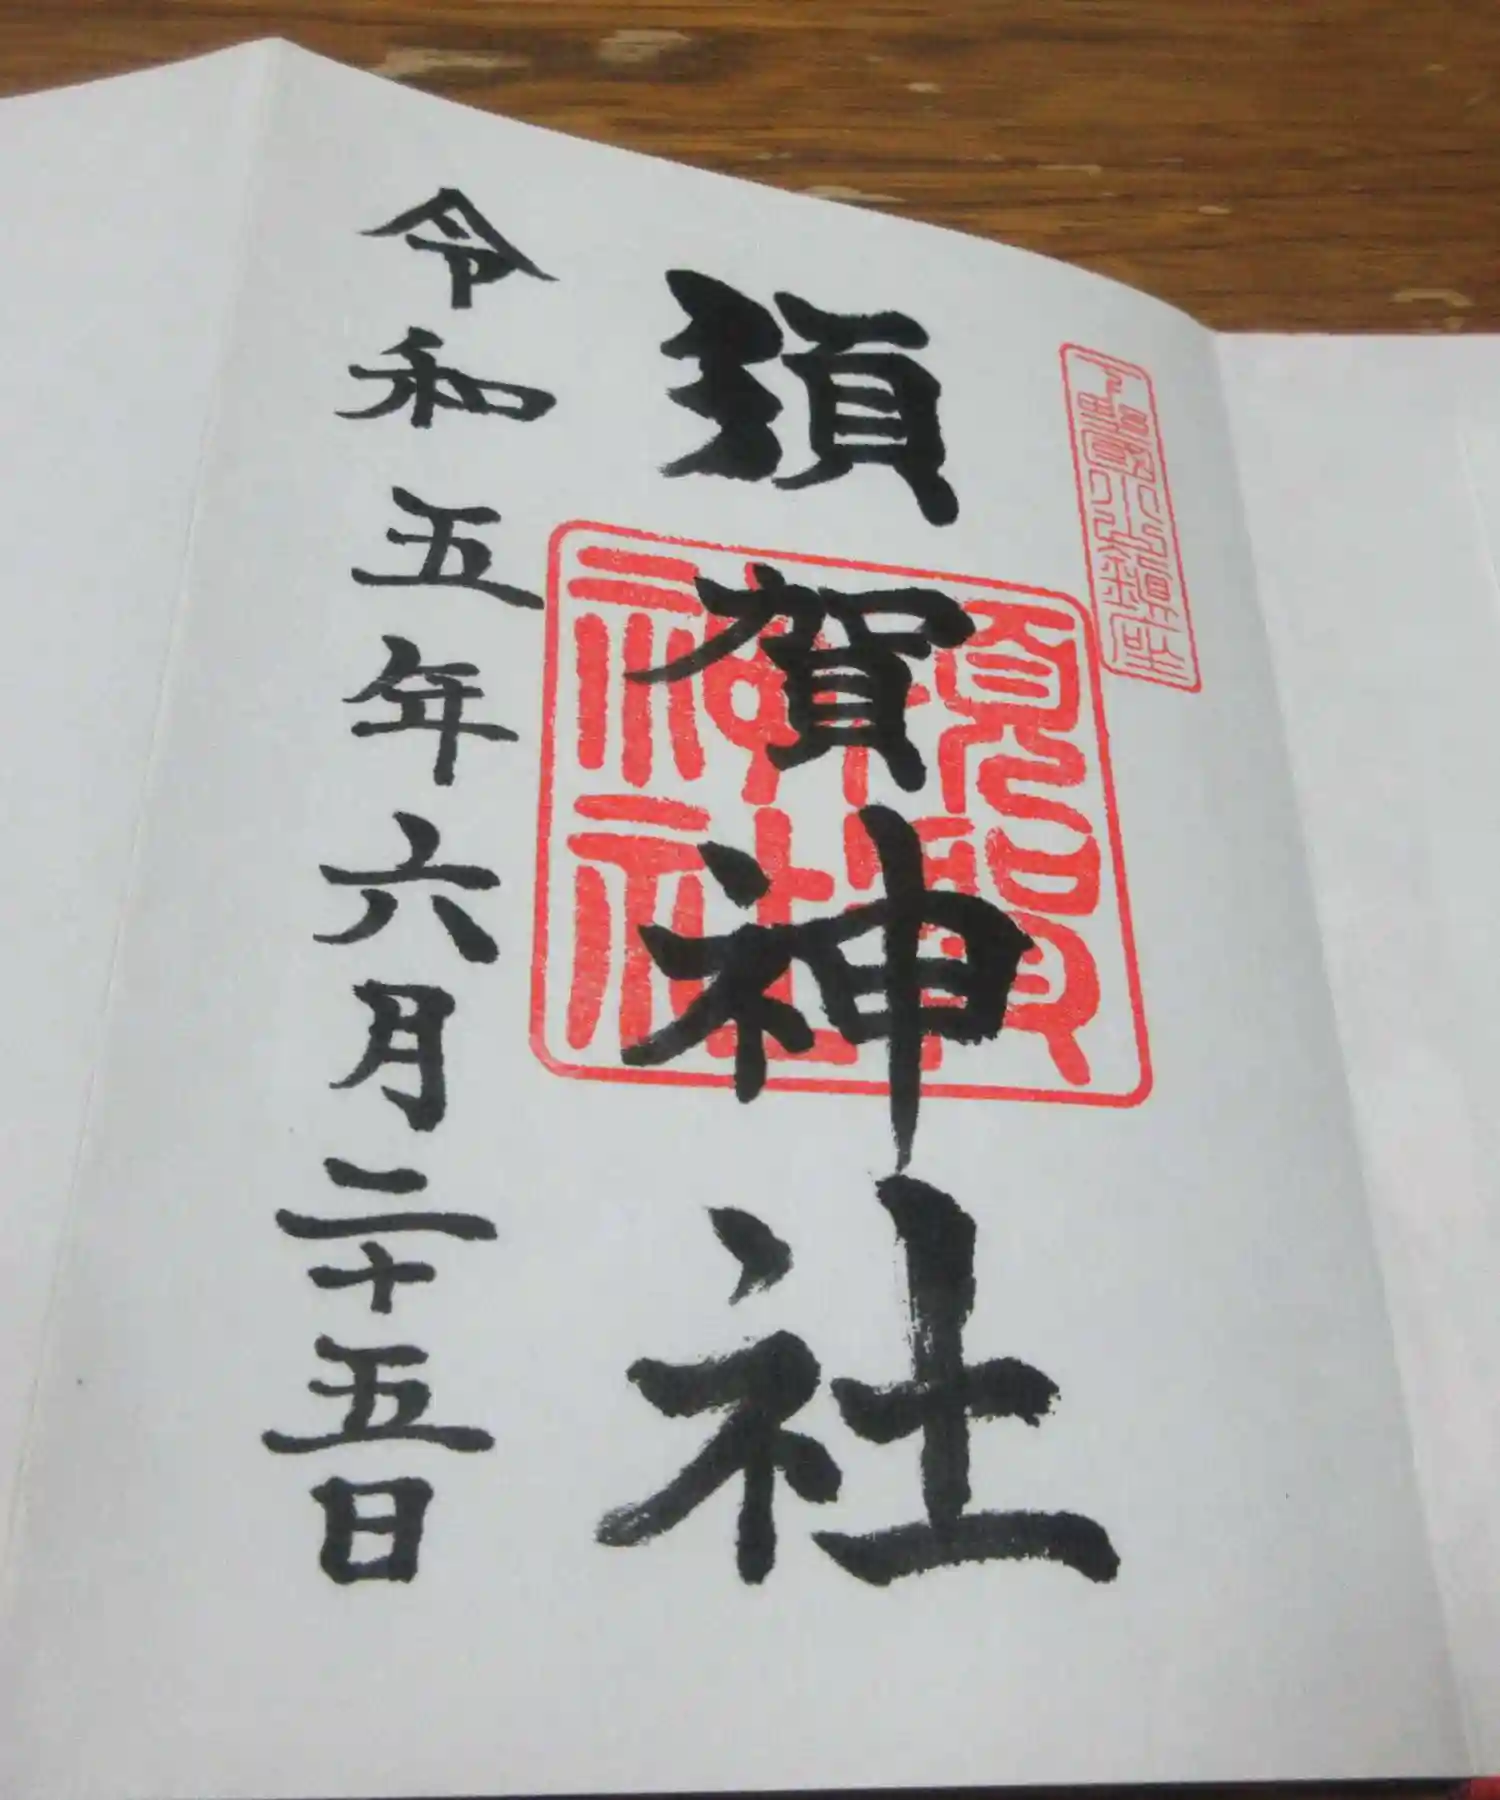 須賀神社
須賀神社
令和五年六月二十五日